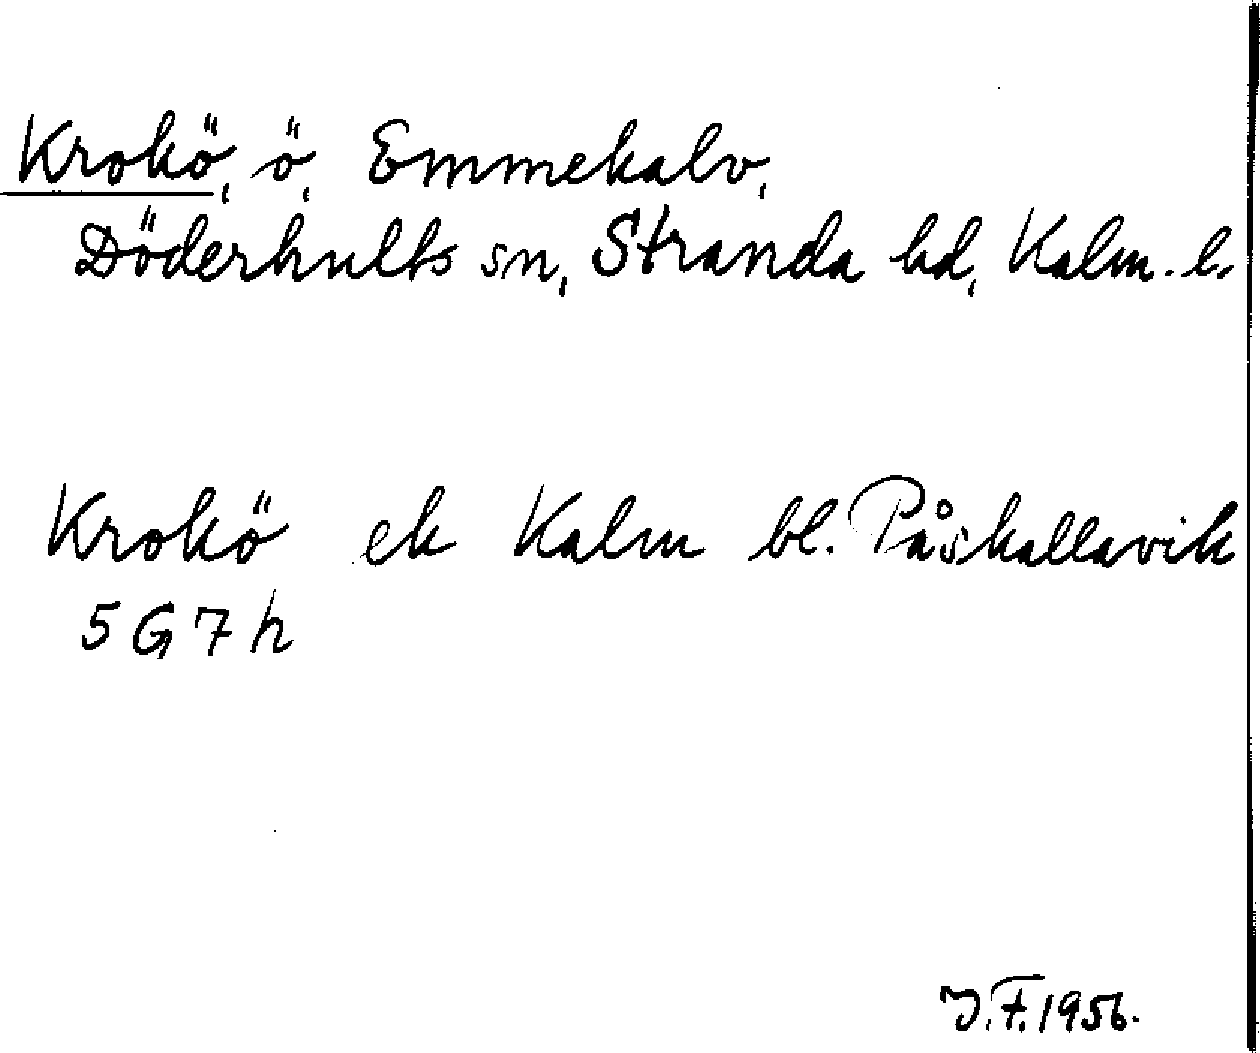 Krokö, ö, Emmekalv,
Döderhults sn, Stranda hd, Kalm. l.
Krokö ek Kalm bl. Påskallavik
5 G 7 h
J.F. 1956.